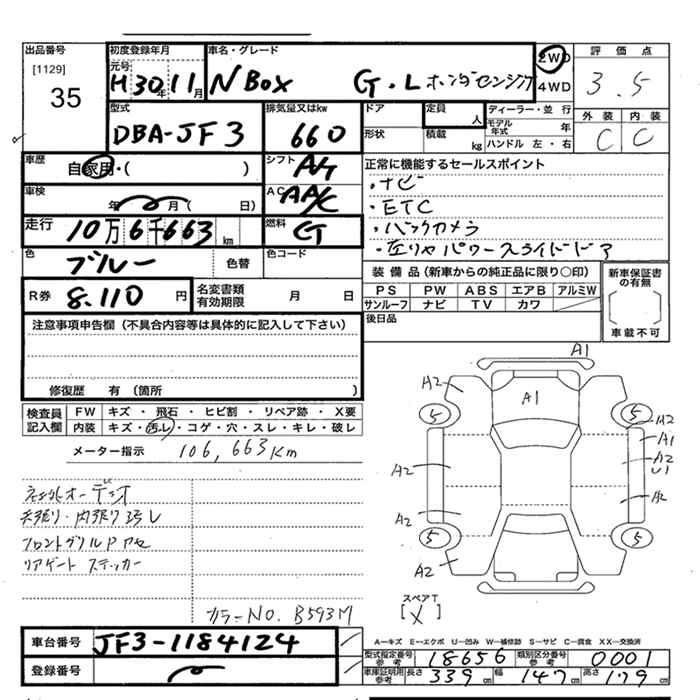 出品番号
[1129]
35
初度登録年月
元号
H30年11月
車名・グレード
N BOX G・L ホンダセンシング
2WD
4WD
評価点
3.5
型式
DBA-JF3
排気量又はkw
660
ドア
形状
定員
人
積載
kg
ディーラー・並行
モデル年式 年
ハンドル 左・右
外装 内装
C C
車歴
自家用・( )
シフト
AT
車検
年 月( 日)
AC
AAC
正常に機能するセールスポイント
・ナビ
・ETC
・バックカメラ
・左リヤパワースライドドア
走行
10万6千663km
燃料
G
色
ブルー
色替
色コード
R券
8.110円
名変書類有効期限
月 日
装備品(新車からの純正品に限り○印)
PS PW ABS エアB アルミW
サンルーフ ナビ TV カワ
後日品
新車保証書の有無
車載不可
注意事項申告欄(不具合内容等は具体的に記入して下さい)
修復歴 有(箇所 )
検査員記入欄
FW キズ・飛石・ヒビ割・リペア跡・X要
内装 キズ・汚レ・コゲ・穴・スレ・キレ・破レ
メーター指示 106,663Km
社外オーデオ
天張り・内張り汚レ
フロントグリルPアセ
リアゲート ステッカー
カラーNO. B593M
A1
A2
A1
5
5
A2
A1
A2
A2
U1
A2
A2
5
5
A2
スペアT
[X]
A―キズ E―エクボ U―凹み W―補修跡 S―サビ C―腐食 XX―交換済
車台番号
JF3-1184124
登録番号
型式指定番号 参考
18656
類別区分番号 参考
0001
車庫証明用 参考
長さ 339cm 幅 147cm 高さ 179cm